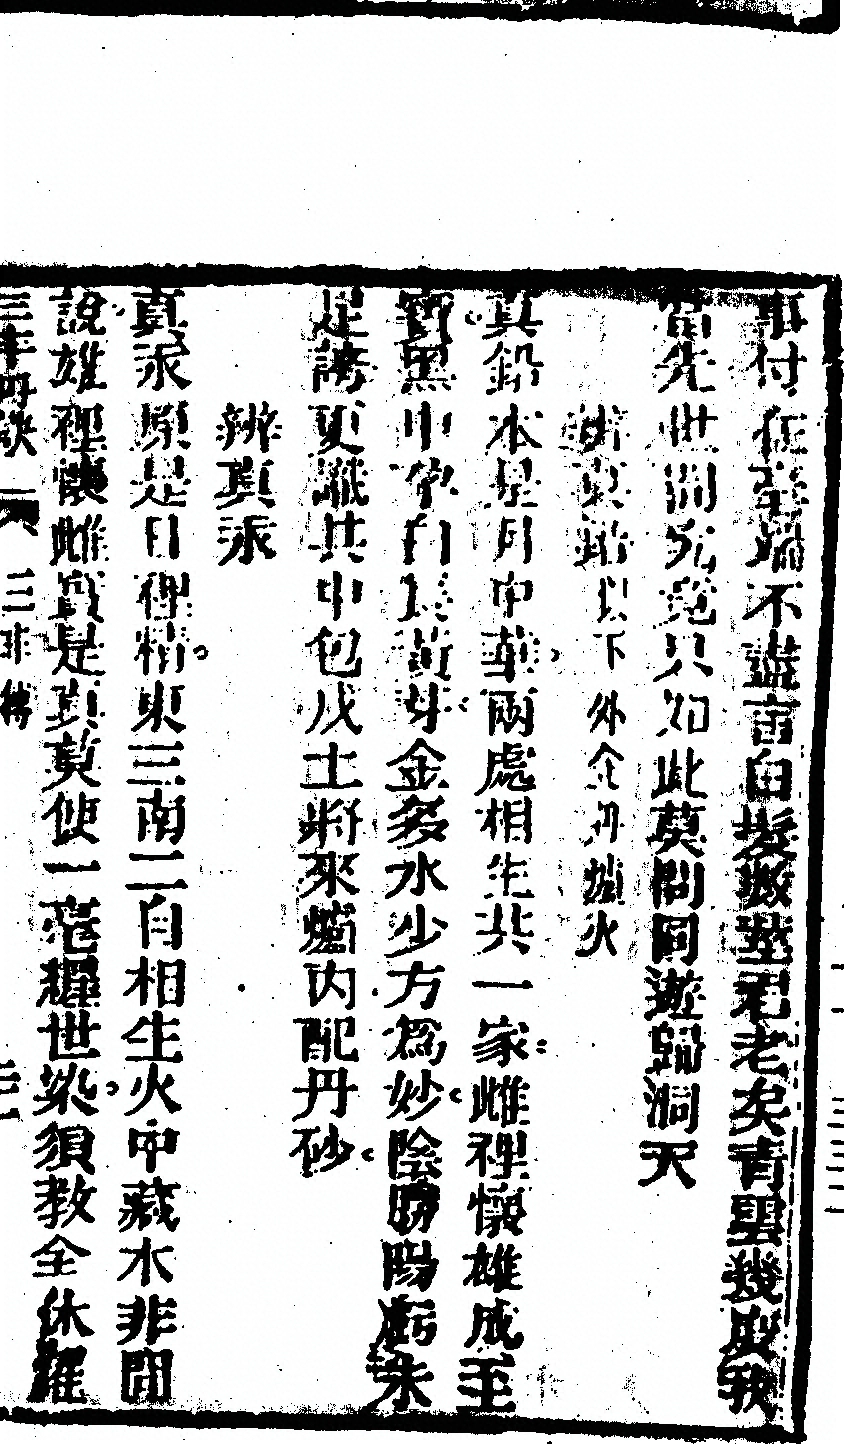 事付在毫端不盡言白髮數莖君老矣青雲幾度我
當先世間究竟只如此莫問同遊歸洞天
辨真鉛以下外金丹爐火
真鉛本是月中華兩處相生共一家雌裡懷雄成至
寶黑中取白長黃芽金多水少方為妙陰勝陽虧未
足誇更識其中包戊土將來爐內配丹砂
辨真汞
真汞原是日裡精東三南二自相生火中藏木非閒
說雄裡懷雌實是真莫使一毫輝世染須教全休羅